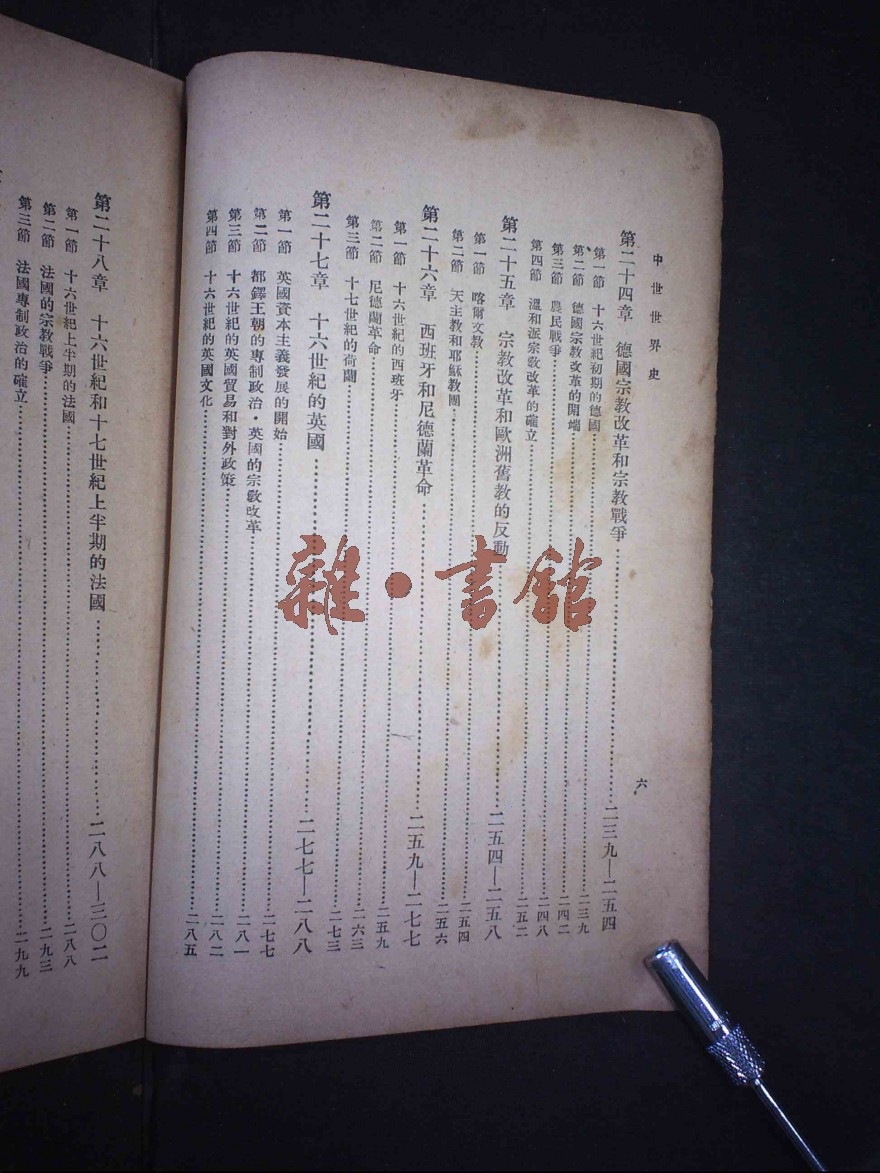 中世世界史
六
第二十四章 德國宗教改革和宗教戰爭……二三九—二五四
第一節 十六世紀初期的德國……二三九
第二節 德國宗教改革的開端……二四二
第三節 農民戰爭……二四八
第四節 溫和派宗教改革的確立……二五二
第二十五章 宗教改革和歐洲舊教的反動……二五四—二五八
第一節 喀爾文教……二五四
第二節 天主教和耶穌教團……二五六
第二十六章 西班牙和尼德蘭革命……二五九—二七七
第一節 十六世紀的西班牙……二五九
第二節 尼德蘭革命……二六三
第三節 十七世紀的荷蘭……二七三
第二十七章 十六世紀的英國……二七七—二八八
第一節 英國資本主義發展的開始……二七七
第二節 都鐸王朝的專制政治·英國的宗教改革……二八一
第三節 十六世紀的英國貿易和對外政策……二八二
第四節 十六世紀的英國文化……二八五
第二十八章 十六世紀和十七世紀上半期的法國……二八八—三〇二
第一節 十六世紀上半期的法國……二八八
第二節 法國的宗教戰爭……二九三
第三節 法國專制政治的確立……二九九
雜·書館